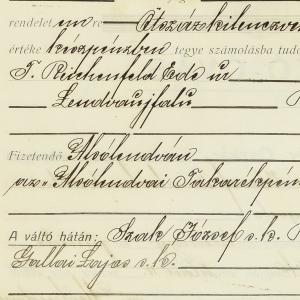 rendelet em re Ötszázkilenczve
értéke készpénzben tegye számolásba tud
T. Reichenfeld Ede ur
Lendvaujfalu
Fizetendő Alsólendván
az „Alsólendvai Takarékpén
A váltó hátán: Szak József s.k.
Gallai Lajos s.k.